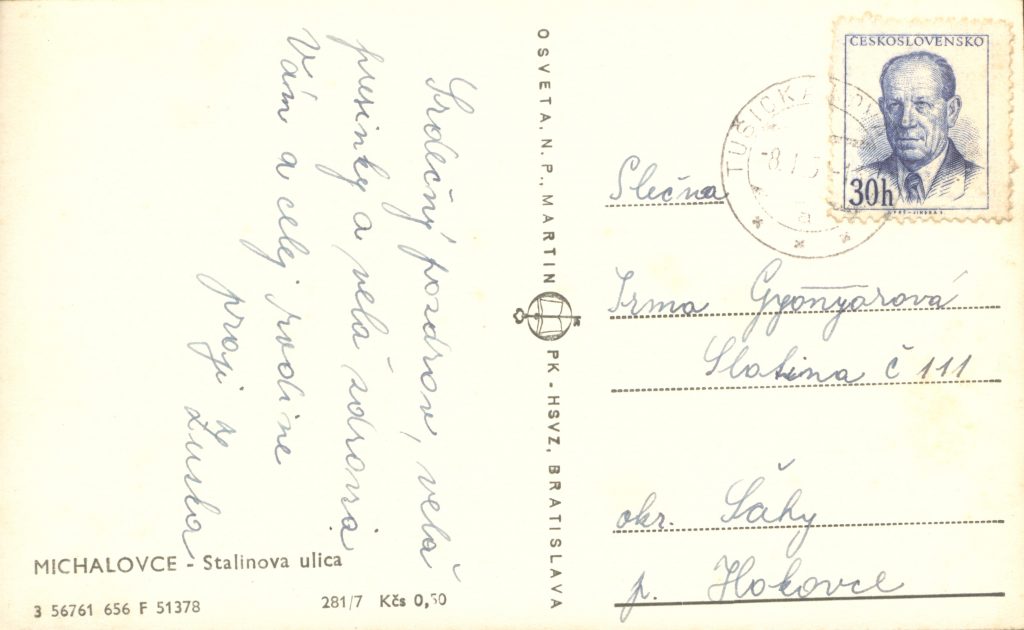 Srdečný pozdrov, velă
pusinky a vela zdrovia
Vám a celej rodine
praji Zuska
OSVETA, N. P., MARTIN
PK - HSVZ, BRATISLAVA
ČESKOSLOVENSKO
30h
TUŠICKÁ
-8.1.5
a
Slečna
Irma Gyönyörová
Slatina č 111
okr. Šahy
p. Hokovce
MICHALOVCE - Stalinova ulica
3 56761 656 F 51378 281/7 Kčs 0,50